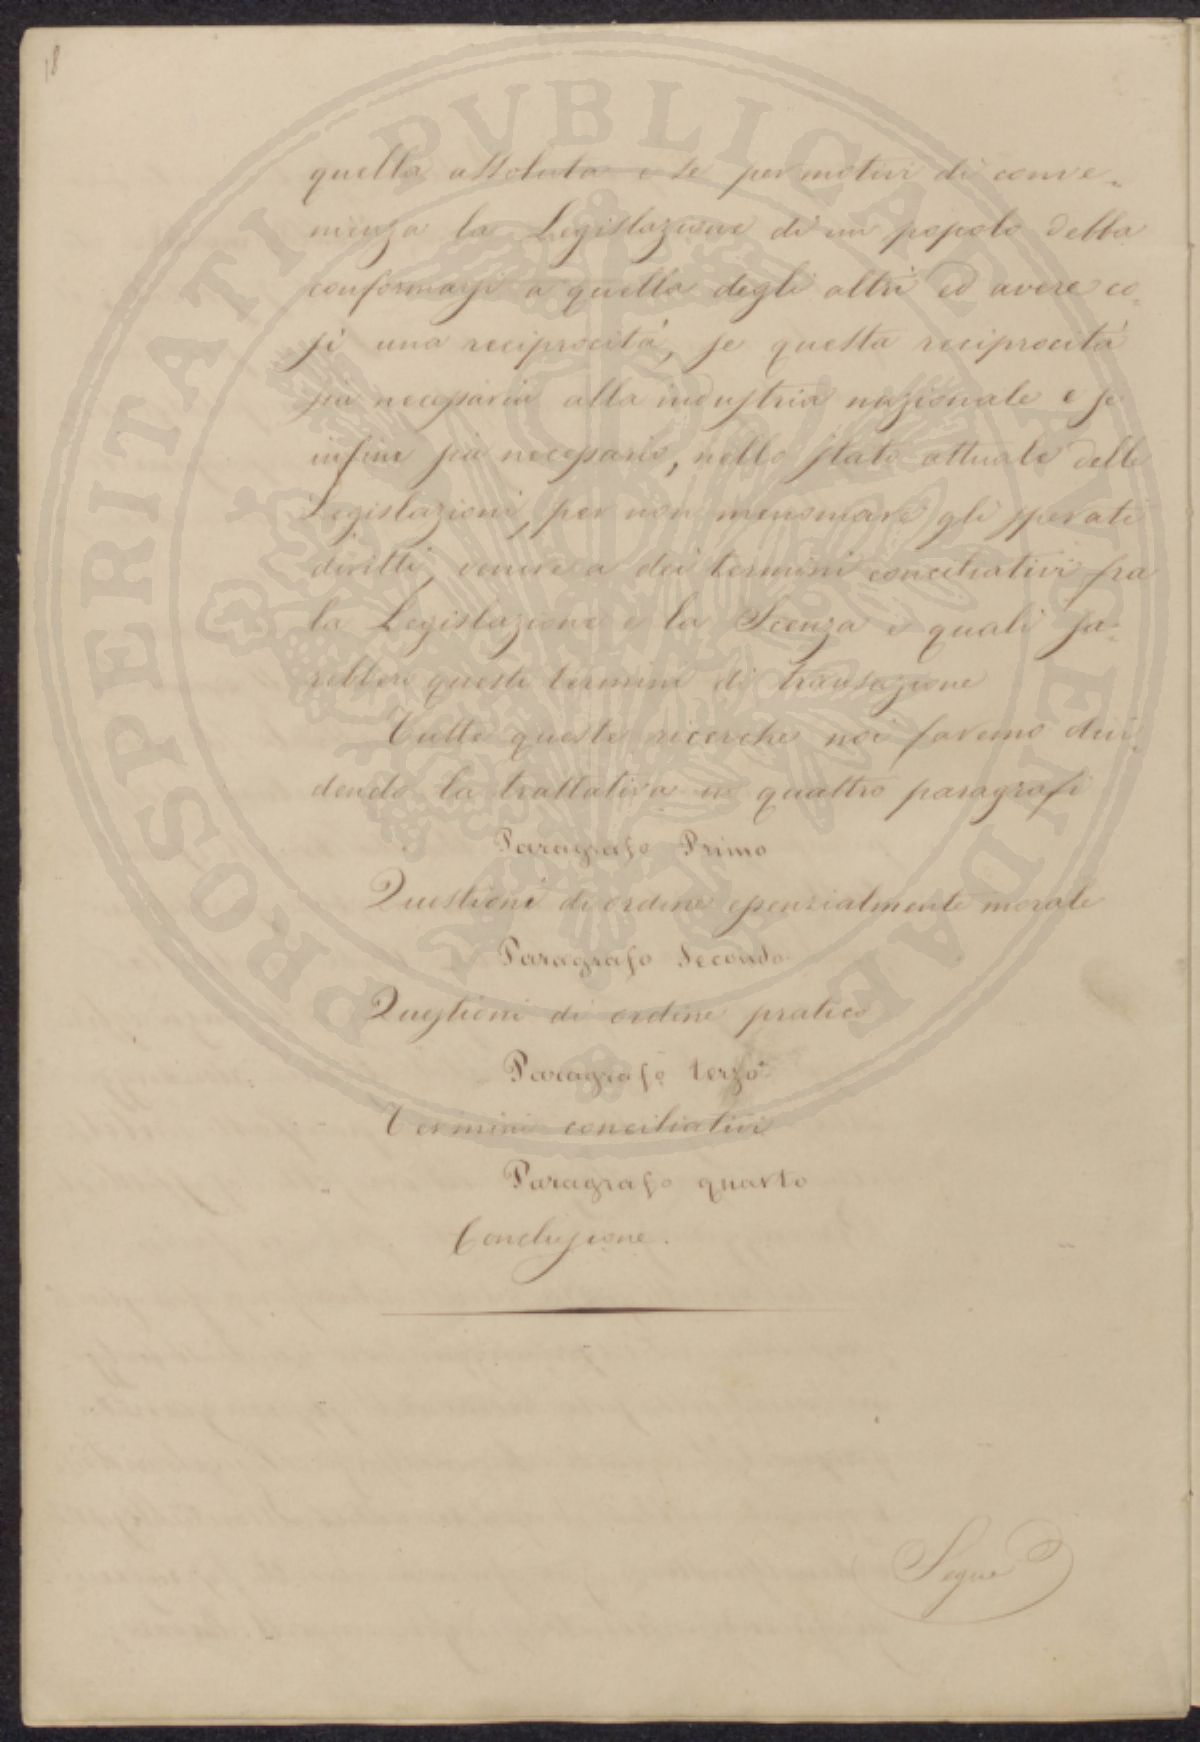 18
quella assoluta e se per motivi di conve-
nienza la Legislazione di un popolo debba
conformarsi a quella degli altri ed avere co-
sì una reciprocità, se questa reciprocità
sia necessaria alla industria nazionale e se
infine sia necessario, nello stato attuale delle
Legislazioni, per non menomare gli sperati
diritti, venire a dei termini conciliativi fra
la Legislazione e la Scenza e quali sa-
rebbero questi termini di transazione
Tutte queste ricerche noi faremo divi-
dendo la trattativa in quattro paragrafi
Paragrafo Primo
Questioni di ordine essenzialmente morale
Paragrafo Secondo
Questioni di ordine pratico
Paragrafo terzo
Termini conciliativi
Paragrafo quarto
Conclusione.
Segue
PROSPERITATI PVBLICAE AVGENDAE